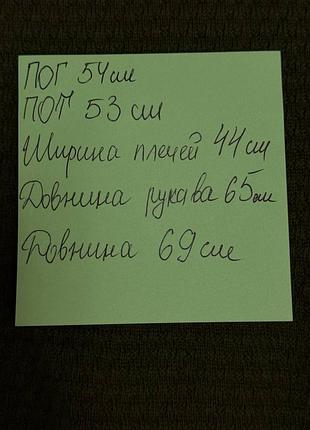 ПОГ 54см
ПОТ 53 см
Ширина плечей 44 см
Довнина рукава 65см
Довнина 69 см